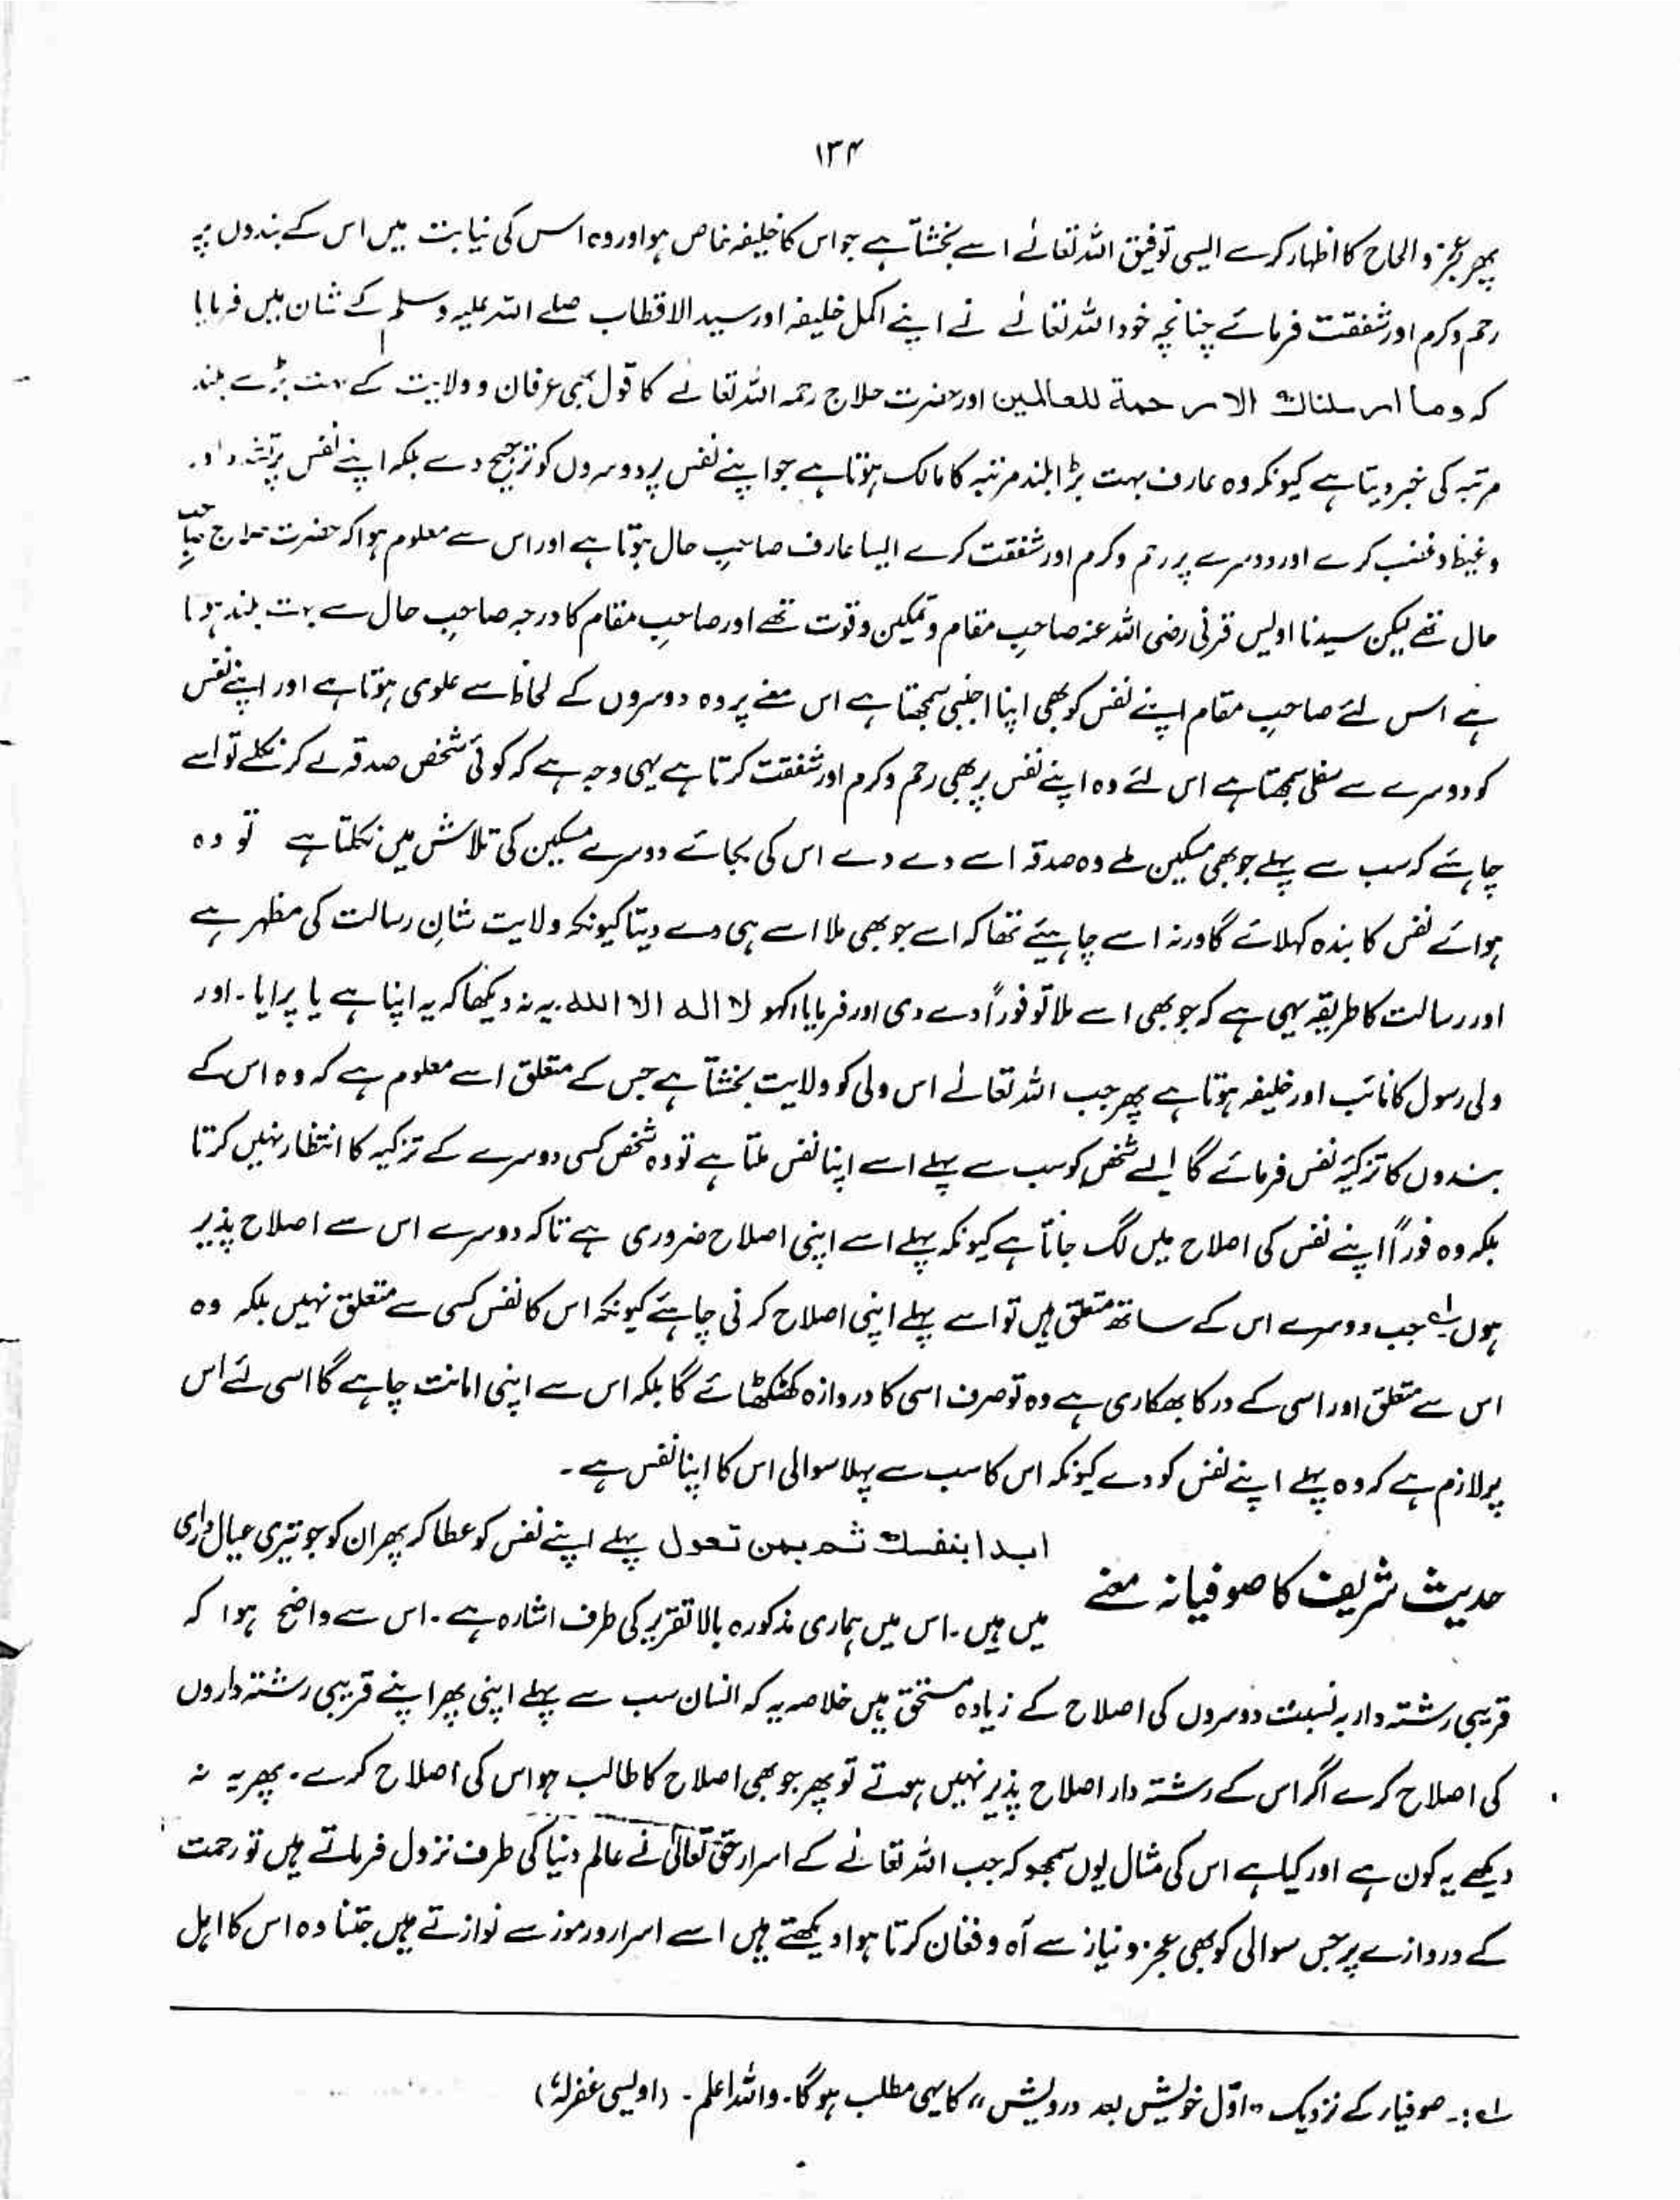 ۱۳۴
پھر عجز و الحاح کا اظہار کرے ایسی توفیق اللہ تعالےٰ اسے بخشتا ہے جو اس کا خلیفہ خاص ہو اور وہ اس کی نیابت میں اس کے بندوں پہ
رحم و کرم اور شفقت فرمائے چنانچہ خود اللہ تعالےٰ نے اپنے اکمل خلیفہ اور سید الاقطاب صلے اللہ علیہ وسلم کے شان میں فرمایا
کہ وما ارسلناك الا رحمة للعالمین اور حضرت حلاج رحمہ اللہ تعالےٰ کا قول بھی عرفان و ولایت کے بہت بڑے بلند
مرتبہ کی خبر دیتا ہے کیونکہ وہ عارف بہت بڑا بلند مرتبہ کا مالک ہوتا ہے جو اپنے نفس پر دوسروں کو ترجیح دے بلکہ اپنے نفس پر تشدد اور
و غیظ و غضب کرے اور دوسرے پر رحم و کرم اور شفقت کرے ایسا عارف صاحبِ حال ہوتا ہے اور اس سے معلوم ہوا کہ حضرت حلاج صاحبِ
حال تھے لیکن سیدنا اویس قرنی رضی اللہ عنہ صاحبِ مقام و تمکین و قوت تھے اور صاحبِ مقام کا درجہ صاحبِ حال سے بہت بلند ہوتا
ہے اس لئے صاحبِ مقام اپنے نفس کو بھی اپنا اجنبی سمجھتا ہے اس معنے پر وہ دوسروں کے لحاظ سے علوی ہوتا ہے اور اپنے نفس
کو دوسرے سے سفلی سمجھتا ہے اس لئے وہ اپنے نفس پر بھی رحم و کرم اور شفقت کرتا ہے یہی وجہ ہے کہ کوئی شخص صدقہ لے کر نکلے تو اسے
چاہئے کہ سب سے پہلے جو بھی مسکین ملے وہ صدقہ اسے دے دے اس کی بجائے دوسرے مسکین کی تلاش میں نکلتا ہے تو وہ
ہوائے نفس کا بندہ کہلائے گا ورنہ اسے چاہیئے تھا کہ اسے جو بھی ملا اسے ہی دے دیتا کیونکہ ولایت شانِ رسالت کی مظہر ہے
اور رسالت کا طریقہ یہی ہے کہ جو بھی اسے ملا تو فوراً دے دی اور فرمایا کہو لا الہ الا اللہ۔ یہ نہ دیکھا کہ یہ اپنا ہے یا پرایا۔ اور
ولی رسول کا نائب اور خلیفہ ہوتا ہے پھر جب اللہ تعالےٰ اس ولی کو ولایت بخشتا ہے جس کے متعلق اسے معلوم ہے کہ وہ اس کے
بندوں کا تزکیۂ نفس فرمائے گا ایسے شخص کو سب سے پہلے اسے اپنا نفس ملتا ہے تو وہ شخص کسی دوسرے کے تزکیہ کا انتظار نہیں کرتا
بلکہ وہ فوراً اپنے نفس کی اصلاح میں لگ جاتا ہے کیونکہ پہلے اسے اپنی اصلاح ضروری ہے تاکہ دوسرے اس سے اصلاح پذیر
ہوں لہ جب دوسرے اس کے ساتھ متعلق ہیں تو اسے پہلے اپنی اصلاح کرنی چاہئے کیونکہ اس کا نفس کسی سے متعلق نہیں بلکہ وہ
اس سے متعلق اور اسی کے در کا بھکاری ہے وہ تو صرف اسی کا دروازہ کھٹکھٹائے گا بلکہ اس سے اپنی امانت چاہے گا اسی لئے اس
پر لازم ہے کہ وہ پہلے اپنے نفس کو دے کیونکہ اس کا سب سے پہلا سوالی اس کا اپنا نفس ہے۔
حدیث شریف کا صوفیانہ معنے
ابدا بنفسك ثم بمن تعول پہلے اپنے نفس کو عطا کر پھر ان کو جو تیری عیال داری
میں ہیں۔ اس میں ہماری مذکورہ بالا تقریر کی طرف اشارہ ہے۔ اس سے واضح ہوا کہ
قریبی رشتہ دار بہ نسبت دوسروں کی اصلاح کے زیادہ مستحق ہیں خلاصہ یہ کہ انسان سب سے پہلے اپنی پھر اپنے قریبی رشتہ داروں
کی اصلاح کرے اگر اس کے رشتہ دار اصلاح پذیر نہیں ہوتے تو پھر جو بھی اصلاح کا طالب ہو اس کی اصلاح کرے۔ پھر یہ نہ
دیکھے یہ کون ہے اور کیا ہے اس کی مثال یوں سمجھو کہ جب اللہ تعالےٰ کے اسرار حق تعالیٰ نے عالم دنیا کی طرف نزول فرماتے ہیں تو رحمت
کے دروازے پر جس سوالی کو بھی عجز و نیاز سے آہ و فغان کرتا ہوا دیکھتے ہیں اسے اسرار و رموز سے نوازتے ہیں جتنا وہ اس کا اہل
لہ :۔ صوفیاء کے نزدیک "اوّل خویش بعد درویش" کا یہی مطلب ہو گا۔ واللہ اعلم۔ (اویسی غفرلہٗ)